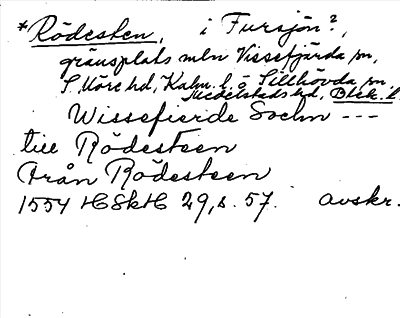 *Rödesten, i Fursjön?,
gränsplats mln Vissefjärda sn,
S. Möre hd, Kalm. l. o Sillhövda sn,
Medelstads hd, Blek. l.
Wissefierde Sochn ---
till Rödesteen
ifrån Rödesteen
1554 HSkH 29, s. 57. avskr.